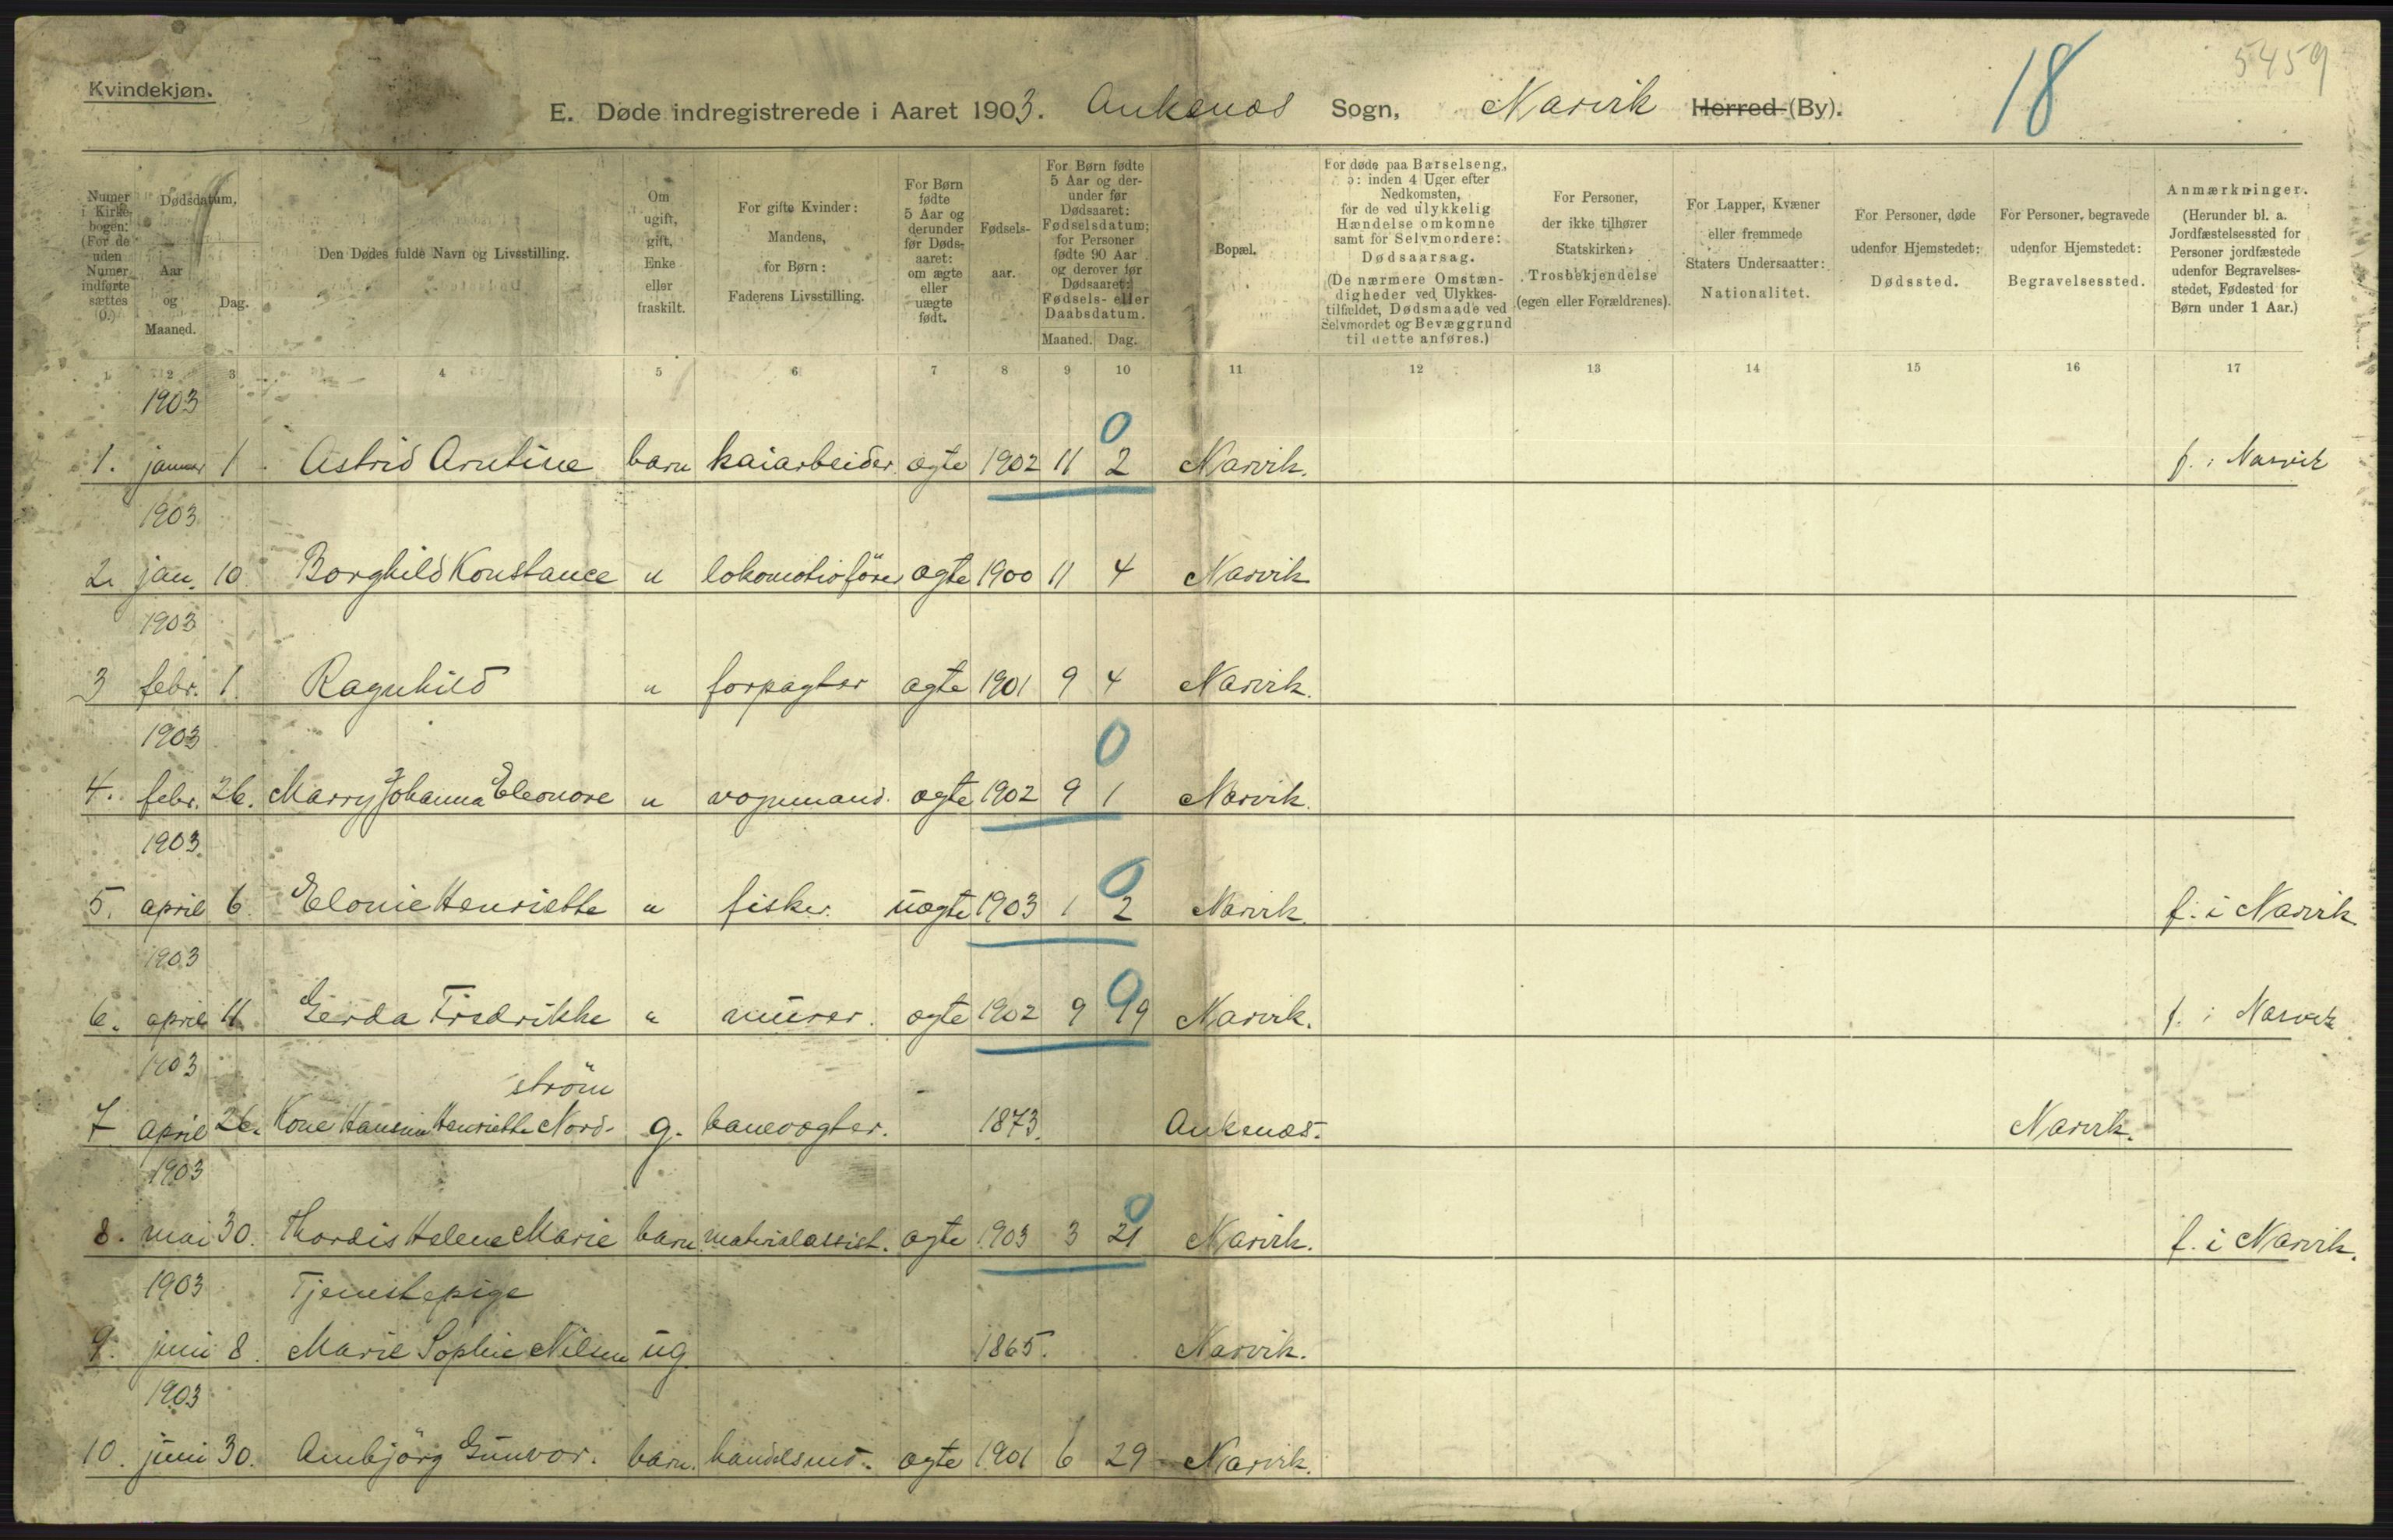 5459
18
Kvindekjøn.
E. Døde indregistrerede i Aaret 1903. Ankenæs Sogn, Narvik Herred (By).
Numer i Kirkebogen: (For de uden Numer indførte sættes 0.)
Dødsdatum,
Aar og Maaned.
Dag.
Den Dødes fulde Navn og Livsstilling.
Om ugift, gift, Enke eller fraskilt.
For gifte Kvinder: Mandens, for Børn: Faderens Livsstilling.
For Børn fødte 5 Aar og derunder før Dødsaaret: om ægte eller uægte født.
Fødselsaar.
For Børn fødte 5 Aar og derunder før Dødsaaret: Fødselsdatum; for Personer fødte 90 Aar og derover før Dødsaaret: Fødsels- eller Daabsdatum.
Maaned. Dag.
Bopæl.
For døde paa Barselseng, ɔ: inden 4 Uger efter Nedkomsten, for de ved ulykkelig Hændelse omkomne samt for Selvmordere: Dødsaarsag.
(De nærmere Omstændigheder ved Ulykkestilfældet, Dødsmaade ved Selvmordet og Bevæggrund til dette anføres.)
For Personer, der ikke tilhører Statskirken: Trosbekjendelse (egen eller Forældrenes).
For Lapper, Kvæner eller fremmede Staters Undersaatter: Nationalitet.
For Personer, døde udenfor Hjemstedet: Dødssted.
For Personer, begravede udenfor Hjemstedet: Begravelsessted.
Anmærkninger. (Herunder bl. a. Jordfæstelsessted for Personer jordfæstede udenfor Begravelsesstedet, Fødested for Børn under 1 Aar.)
1 2 3 4 5 6 7 8 9 10 11 12 13 14 15 16 17
1903
0
1. januar 1. Astrid Arntine barn kaiarbeider ægte 1902 11 2 Narvik. f. i Narvik
1903
2. jan. 10. Borghild Konstance " lokomotivfører ægte 1900 11 4 Narvik
1903
3 febr. 1. Ragnhild " forpagter ægte 1901 9 4 Narvik.
1903
0
4. febr. 26. Marry Johanna Eleonore " vognmand. ægte 1902 9 1 Narvik.
1903
0
5. april 6. Elonie Henriette " fisker. uægte 1903 1 2 Narvik. f. i Narvik
1903
0
6. april 11. Gerda Fredrikke " murer. ægte 1902 9 Narvik. f. i Narvik
1903
strøm
7 april 26. Kone Hansine Henriette Nord- g. banevogter. 1873. Ankenæs. Narvik.
1903
0
8. mai 30. Thordis Helene Marie barn. materialassist. ægte 1903 3 21 Narvik. f. i Narvik.
1903 Tjenestepige
9. juni 8. Marie Sophie Nilsen ug. 1865. Narvik.
1903
10. juni 30. Ambjörg Gunvor. barn. handelsmd. ægte 1901 6 29 Narvik.